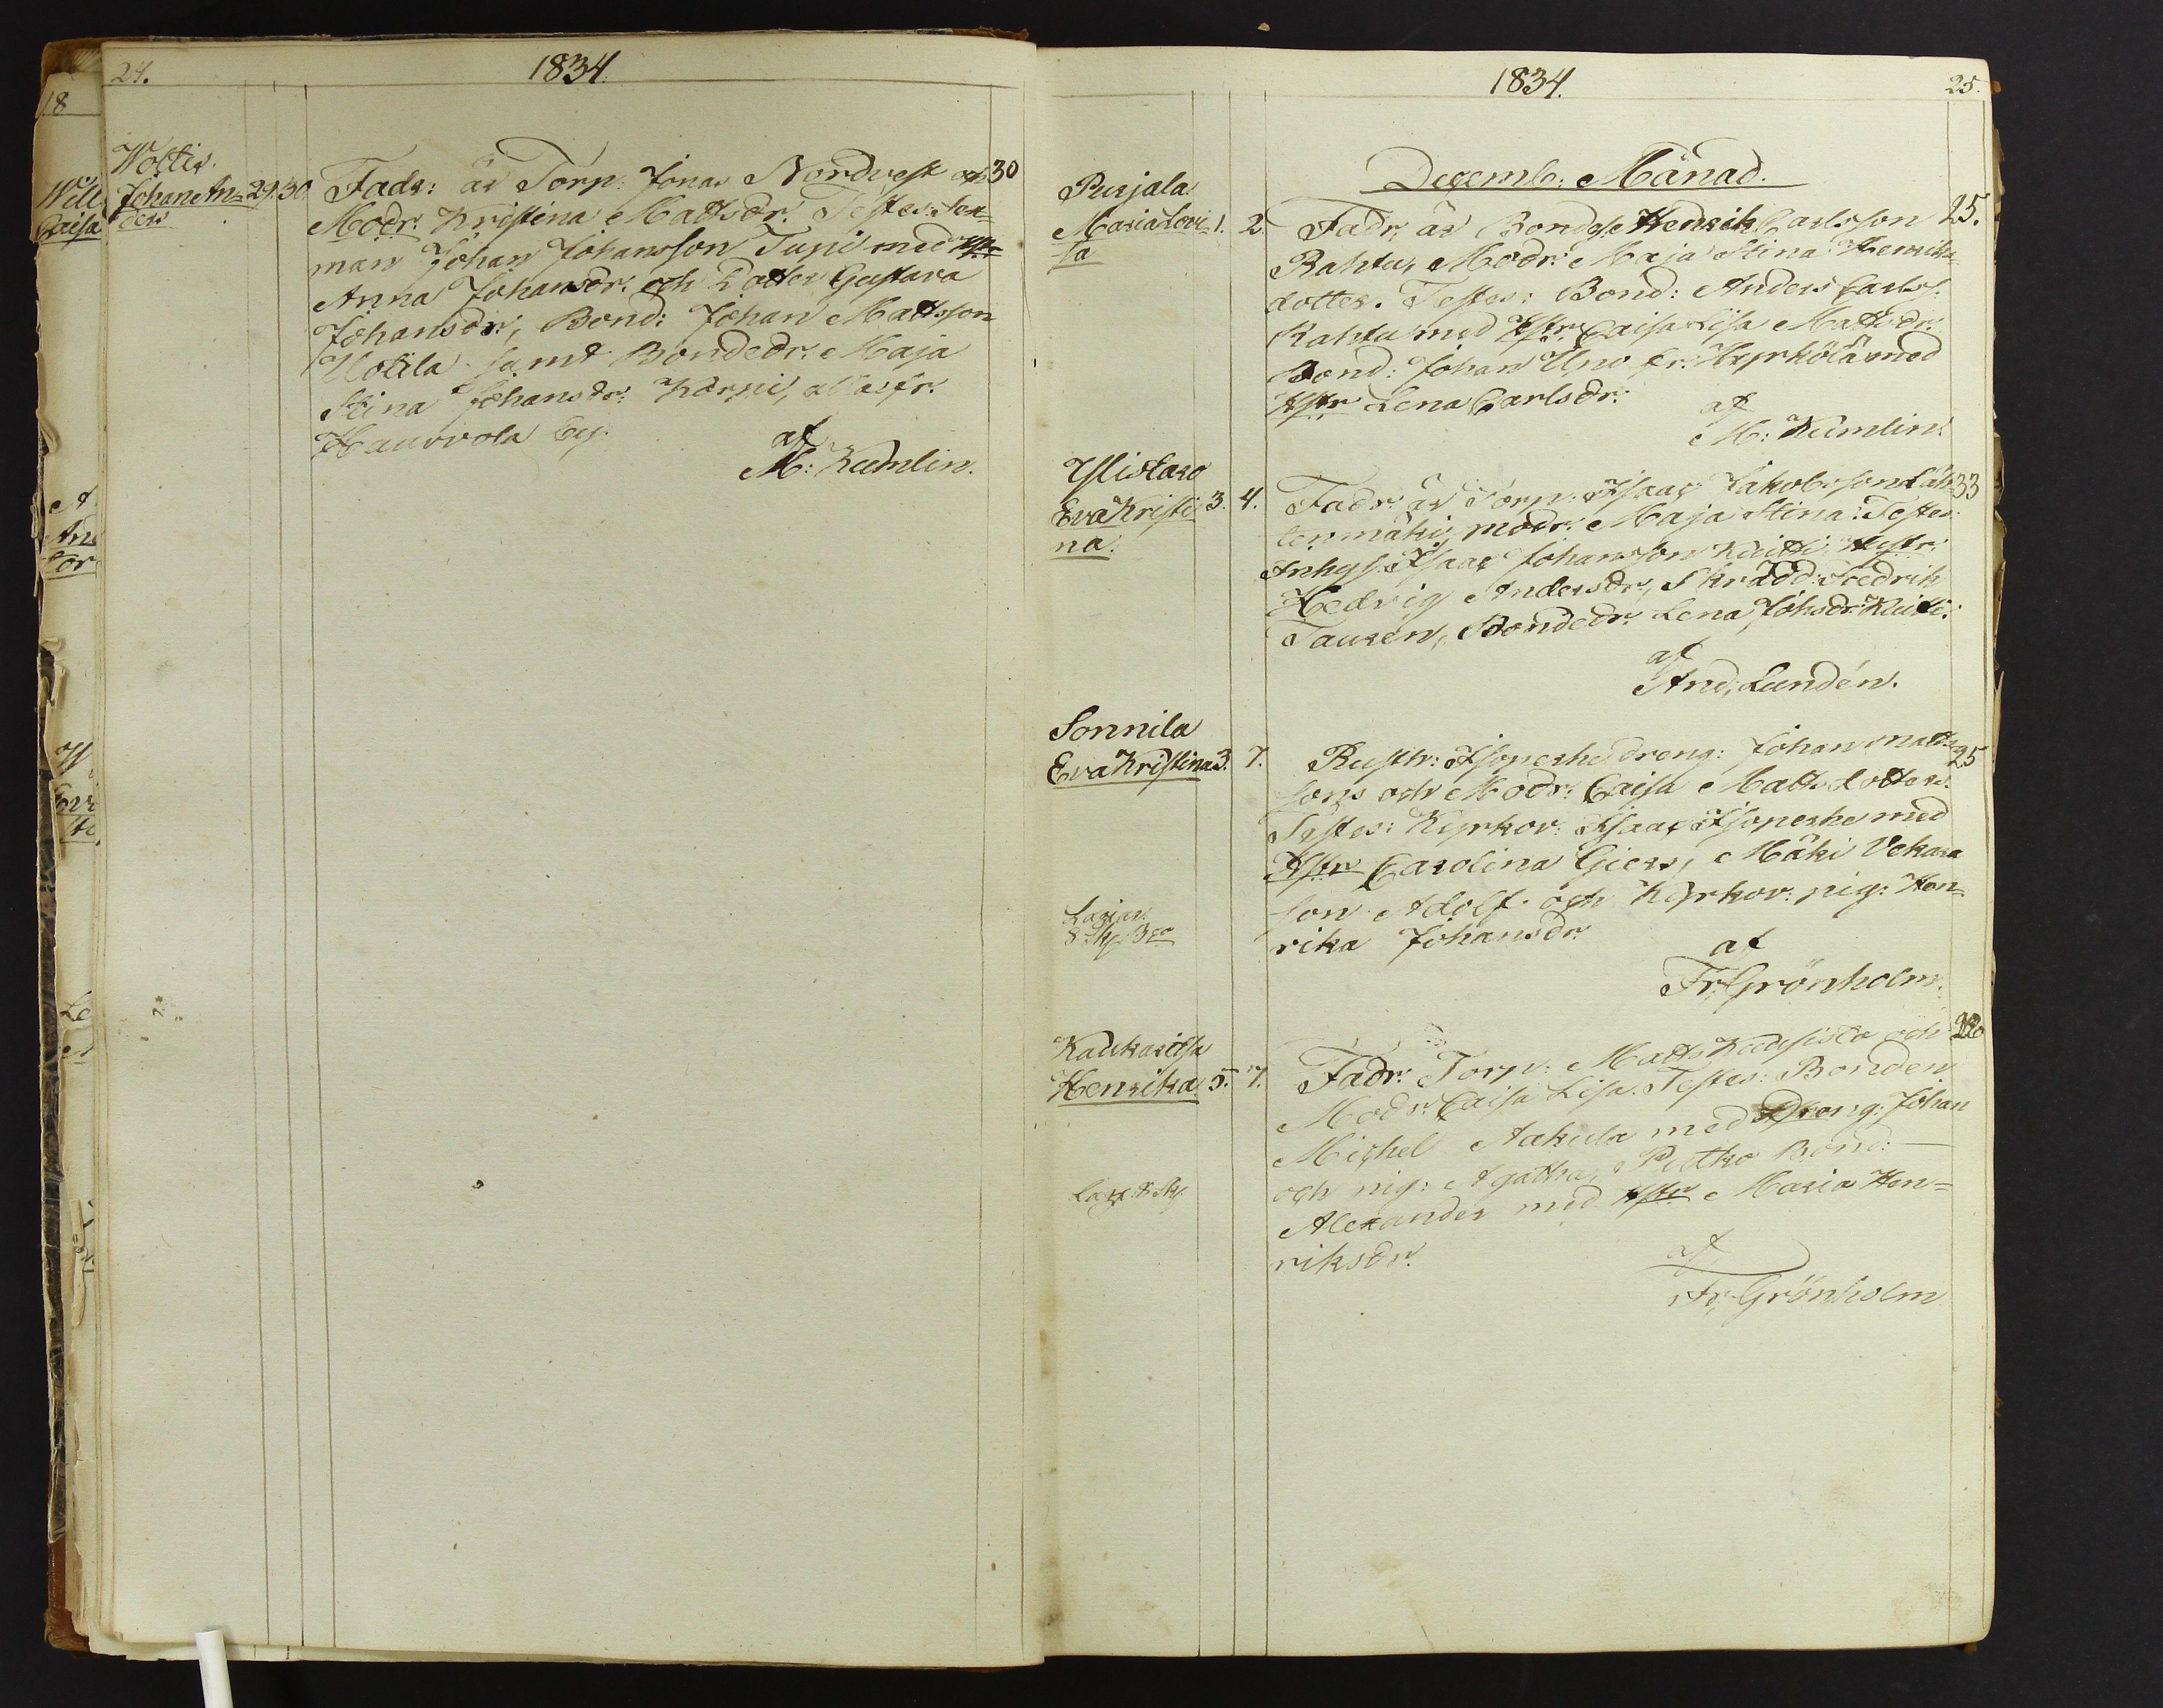 24.
1834.
Wöltis
Johan An= 29. 30.
ders
Fadr: är Torp: Jonas Nordvest och 30
Modr. Kristina Mattsdr. Testes:
man Johan Johansson Tupi med Hstr
Anna Johansdr. och Dotter Gustava
Johansdr, Bond: Johan Mattsson
Uotila samt Bondedr. Maja
Stina Johansdr: Korpi, alla fr.
Hauvvola by.
af
M: Kumlin.
1834.
25.
Decemb: Månad.
Pusjala
Maria Lovi= 1. 2.
sa
Fadr, är Bondes. Hedrik Carlsson 25.
Rahtu, Modr: Maja Stina Henriks
dotter. Testes: Bond: Anders Carlss.
Rahtu med Hstr. Caisa Lisa Mattsdr.
Bond: Johan Uno fr. Hyrkölä med
Hstr Lena Carlsdr.
af
M: Kumlin.
Ylistaro
Eva Kristi 3. 4.
na.
Fadr: är Torp: Isaac Jakobsson Läh= 33
tenmäki, modr: Maja Stina. Testes:
Inhys. Isaac Johansson Kuitti, Hustr:
Hedvig Andersdr, Skrädd: Fredrik
Tauren, Bondedr. Lena Johsdr. Kuitti.
af
And, Lundén.
Sonnila
Eva Kristina 3. 7.
Rusth: Isopeske dreng: Johan Matts= 25
sons och Modr: Caisa Mattsdotter.
Testes: Kyrkov: Isaac Isopeske med
Hstr Carolina Giers, Mäki Vekara
son Adolf och Kyrkov: pig: Hen=
rika Johansdr.
af
Fr, Grönholm.
Kaukasilja
Henrika. 5. 7.
Fadr. Torp: Matts Kuusisto och
Modr. Caisa Lisa. Testes: Bonden
Michel Aakula med Dreng: Johan
och pig: Agatha, Putko Bond:
Alexander med Hstr Maria Hen=
riksdr.
af
Fr, Grönholm